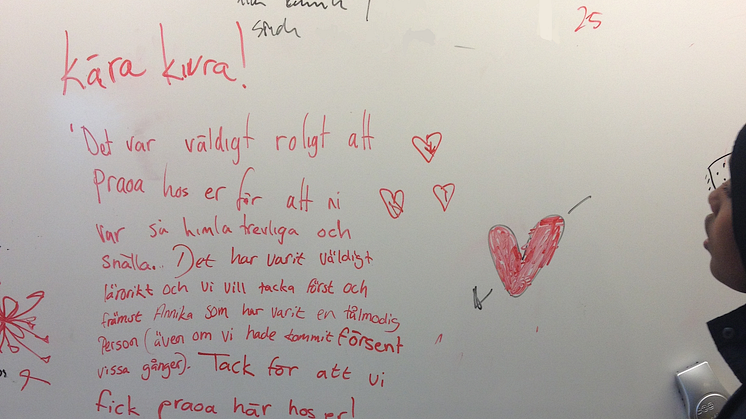 25
kära kivra!
Det var väldigt roligt att
praoa hos er för att ni
var så himla trevliga och
snälla.. Det har varit väldigt
lärorikt och vi vill tacka först och
främst Annika som har varit en tålmodig
Person (även om vi hade kommit försent
vissa gånger). Tack för att vi
fick praoa här hos er!